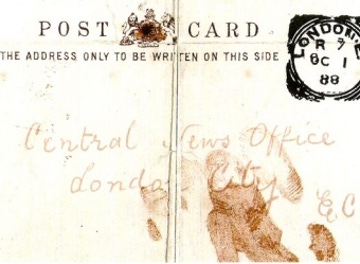 POST CARD
THE ADDRESS ONLY TO BE WRITTEN ON THIS SIDE
LONDON.E.
R 7
OC 1
88
Central News Office
London City
EC